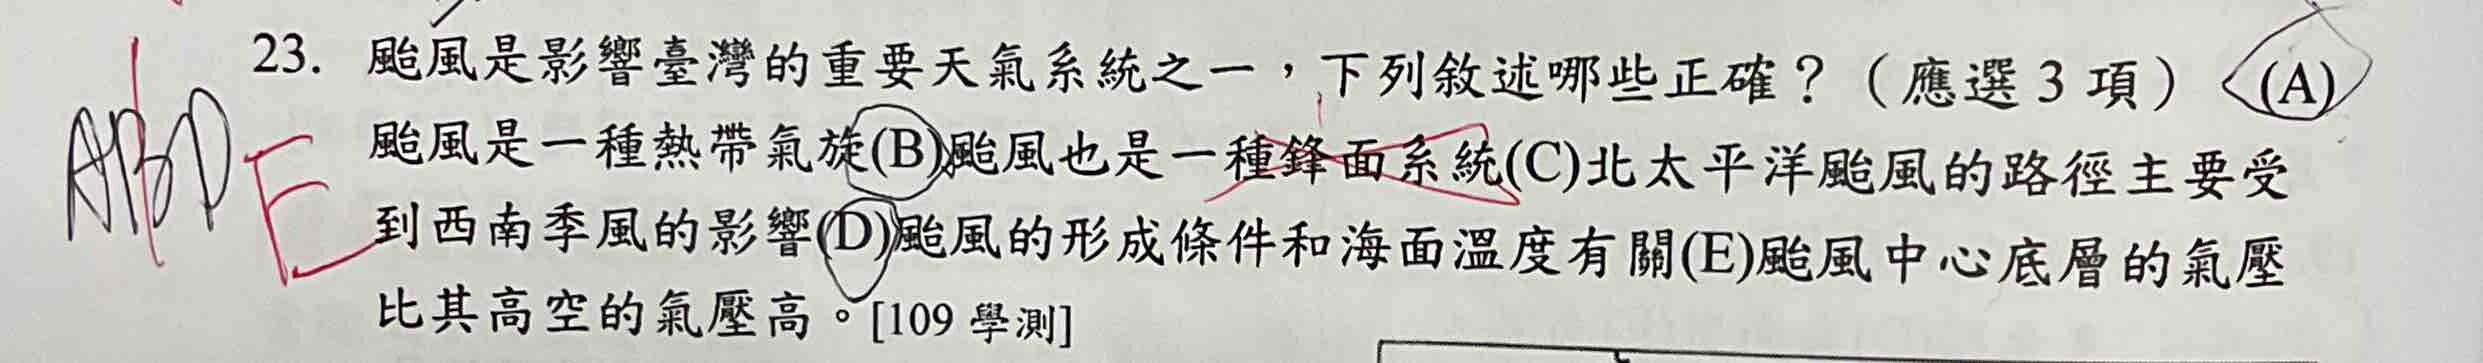 23. 颱風是影響臺灣的重要天氣系統之一，下列敘述哪些正確？（應選 3 項） (A)
颱風是一種熱帶氣旋(B)颱風也是一種鋒面系統(C)北太平洋颱風的路徑主要受
到西南季風的影響(D)颱風的形成條件和海面溫度有關(E)颱風中心底層的氣壓
比其高空的氣壓高。[109 學測]
ABD
E